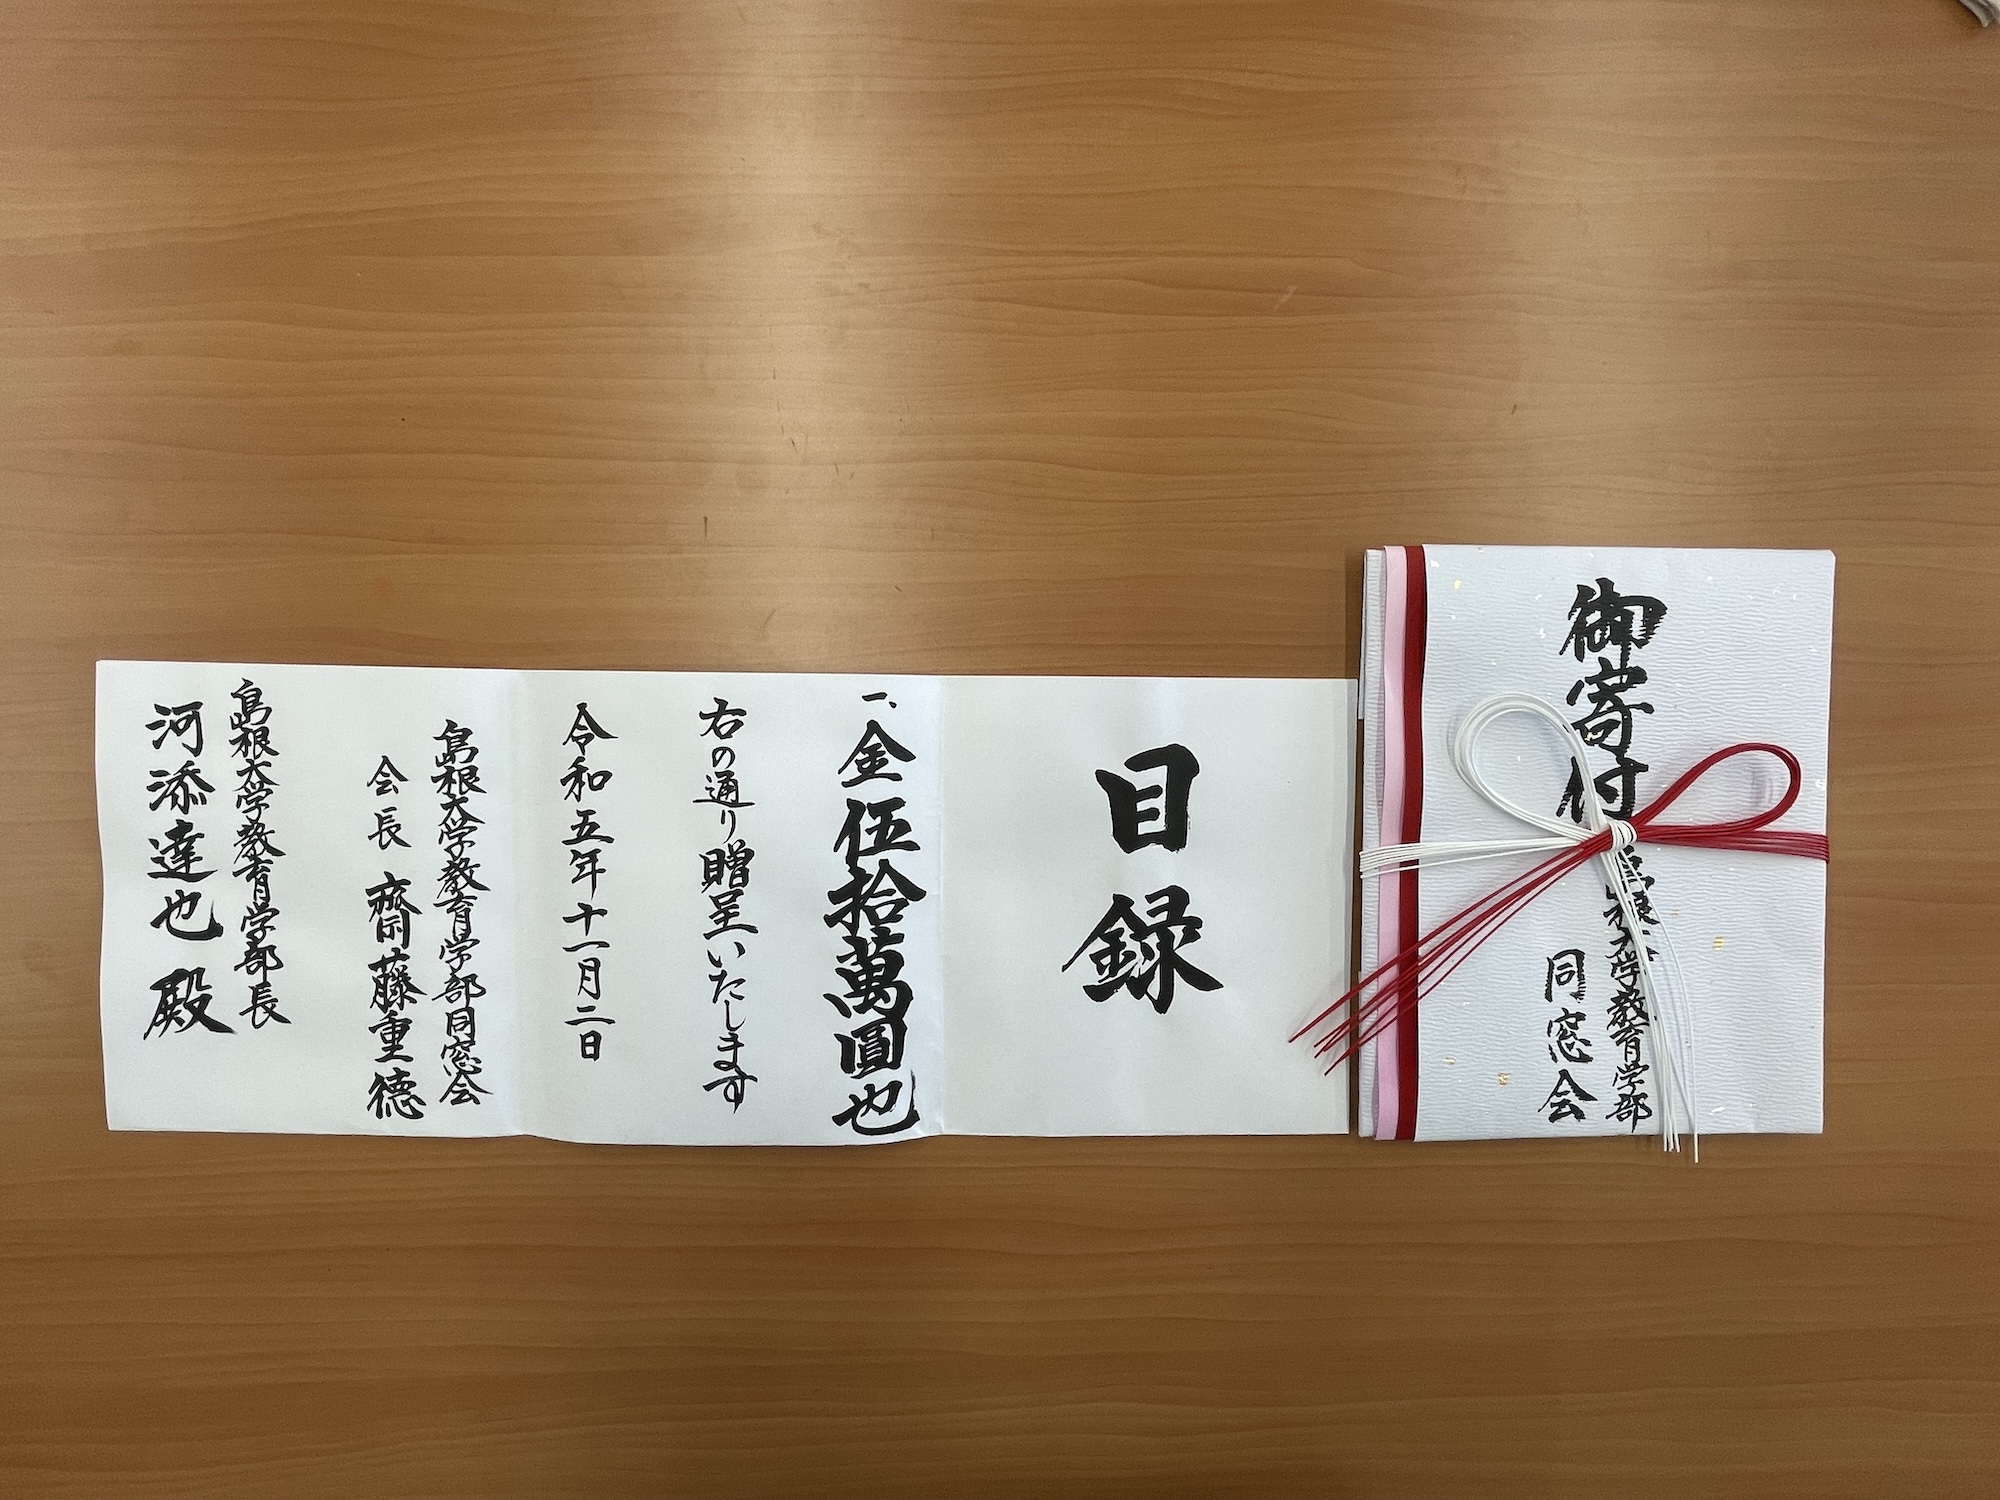 御寄付
島根大学教育学部
同窓会
目録
一、金伍拾萬圓也
右の通り贈呈いたします
令和五年十一月二日
島根大学教育学部同窓会
会長 齋藤重徳
島根大学教育学部長
河添達也 殿